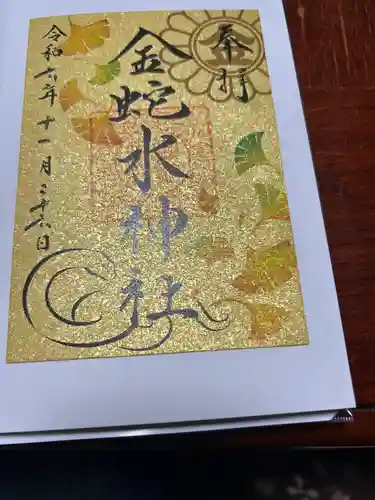 奉拝
金蛇水神社
令和六年十一月二十六日